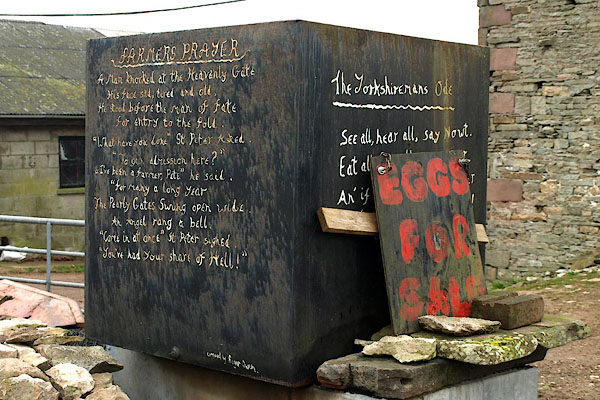 FARMERS PRAYER
A Man knocked at the Heavenly Gate
His face sad, tired and old.
He stood before the man of fate
for entry to the fold.
"What have you done" St Peter asked.
"To gain admission here?"
"I've been a farmer, Pete" he said.
"for many a long year
The Pearly Gates Swung open wide.
An Angel rang a bell.
"Come in at once" St Peter sighed
"You've had Your share of Hell!"
The Yorkshiremans Ode
See all, hear all, say nowt.
Eat all
An' if
EGGS
FOR
SALE